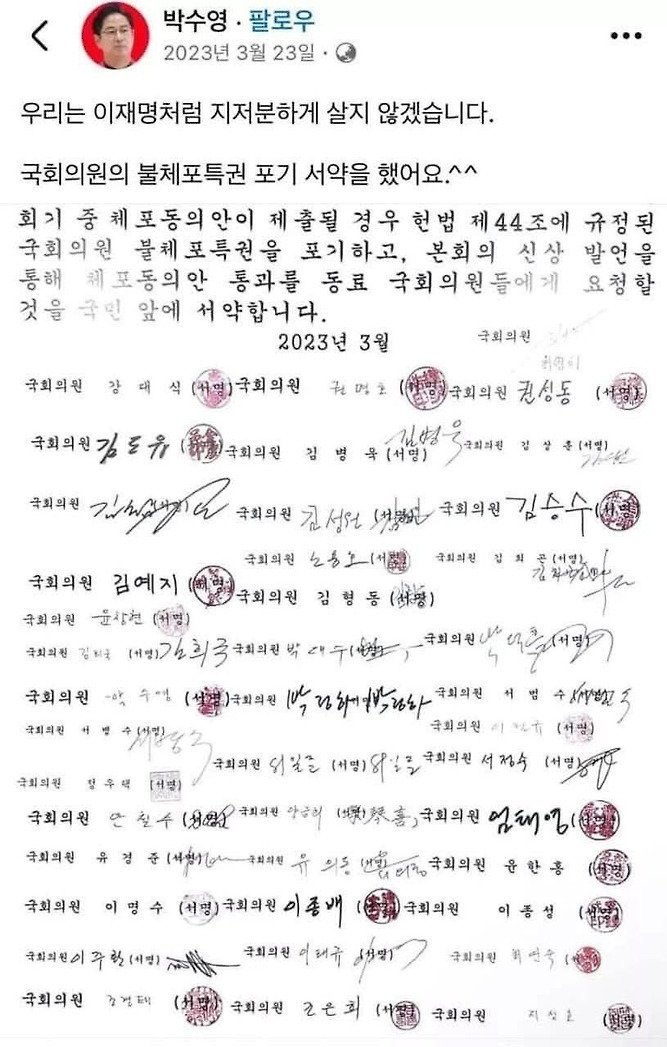 박수영 · 팔로우
2023년 3월 23일 ·
우리는 이재명처럼 지저분하게 살지 않겠습니다.
국회의원의 불체포특권 포기 서약을 했어요.^^
회기 중 체포동의안이 제출될 경우 헌법 제44조에 규정된
국회의원 불체포특권을 포기하고, 본회의 신상 발언을
통해 체포동의안 통과를 동료 국회의원들에게 요청할
것을 국민 앞에 서약합니다.
2023년 3월
국회의원
국회의원 강대식 (서명) 국회의원 권명호 (서명) 국회의원 권성동 (서명)
국회의원 김도읍 국회의원 김병욱 (서명) 김병욱 국회의원 김상훈 (서명)
국회의원 국회의원 김성원 (서명) 국회의원 김승수 (서명)
국회의원 (서명) 국회의원 김희곤 (서명)
국회의원 김예지 (서명) 국회의원 김형동 (서명)
국회의원 윤창현 (서명)
국회의원 (서명) 김희국 국회의원 박대수 (서명) 국회의원 (서명)
국회의원 박수영 (서명) 국회의원 박정하 (서명) 박정하 국회의원 서범수 (서명)
국회의원 서병수 (서명) 국회의원 (서명)
국회의원 (서명) 국회의원 서정숙 (서명)
국회의원 정우택 (서명)
국회의원 안철수 (서명) 국회의원 국회의원 엄태영 (서명)
국회의원 유경준 (서명) 국회의원 유의동 국회의원 윤한홍 (서명)
국회의원 이명수 (서명) 국회의원 이종배 (서명) 국회의원 이종성 (서명)
국회의원 이주환 (서명) 국회의원 국회의원 최연숙 (서명)
국회의원 조경태 (서명) 국회의원 조은희 (서명) 국회의원 지성호 (서명)